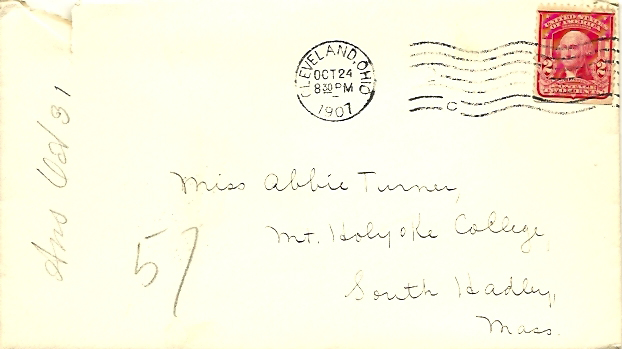 CLEVELAND, OHIO
OCT 24
8 30 PM
1907
C
UNITED STATES
OF AMERICA
2 2
POSTAGE
TWO CENTS
Miss Abbie Turner,
Mt. Holyoke College,
South Hadley,
Mass.
57
Ans Oct 31